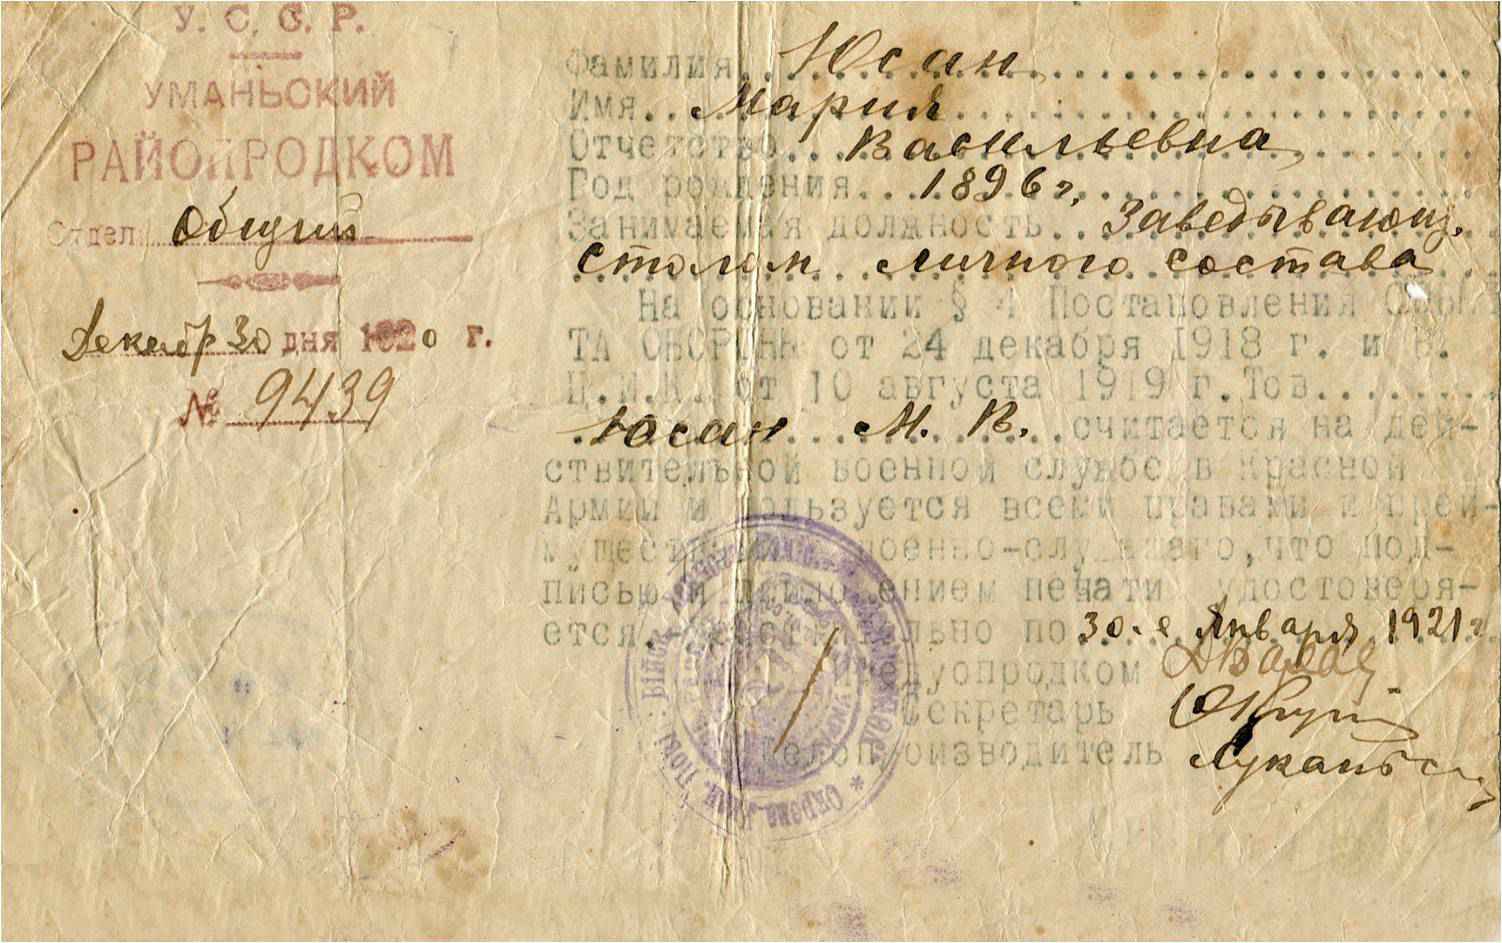 У. С. С. Р.
УМАНЬСКИЙ
РАЙОПРОДКОМ
Отдел Общий
Декабр 30 дня 1920 г.
№ 9439
Фамилия Юсан
Имя Мария
Отчетство Васильевна
Год рождения 1896 г.
Занимаемая должность Заведывающ.
столом личного состава
На основании § 4 Постановления СОВЕ
ТА ОБОРОНЫ от 24 декабря 1918 г. и В.
Ц.И.К. от 10 августа 1919 г. Тов.
Юсан М. В. считается на дей-
ствительной военной службе в Красной
Армии и пользуется всеми правами и преи-
муществами военно-служащего, что под-
писью и приложением печати удостоверя-
ется. Действительно по 30-е Января 1921 г
Предуопродком
Секретарь
Делопроизводитель